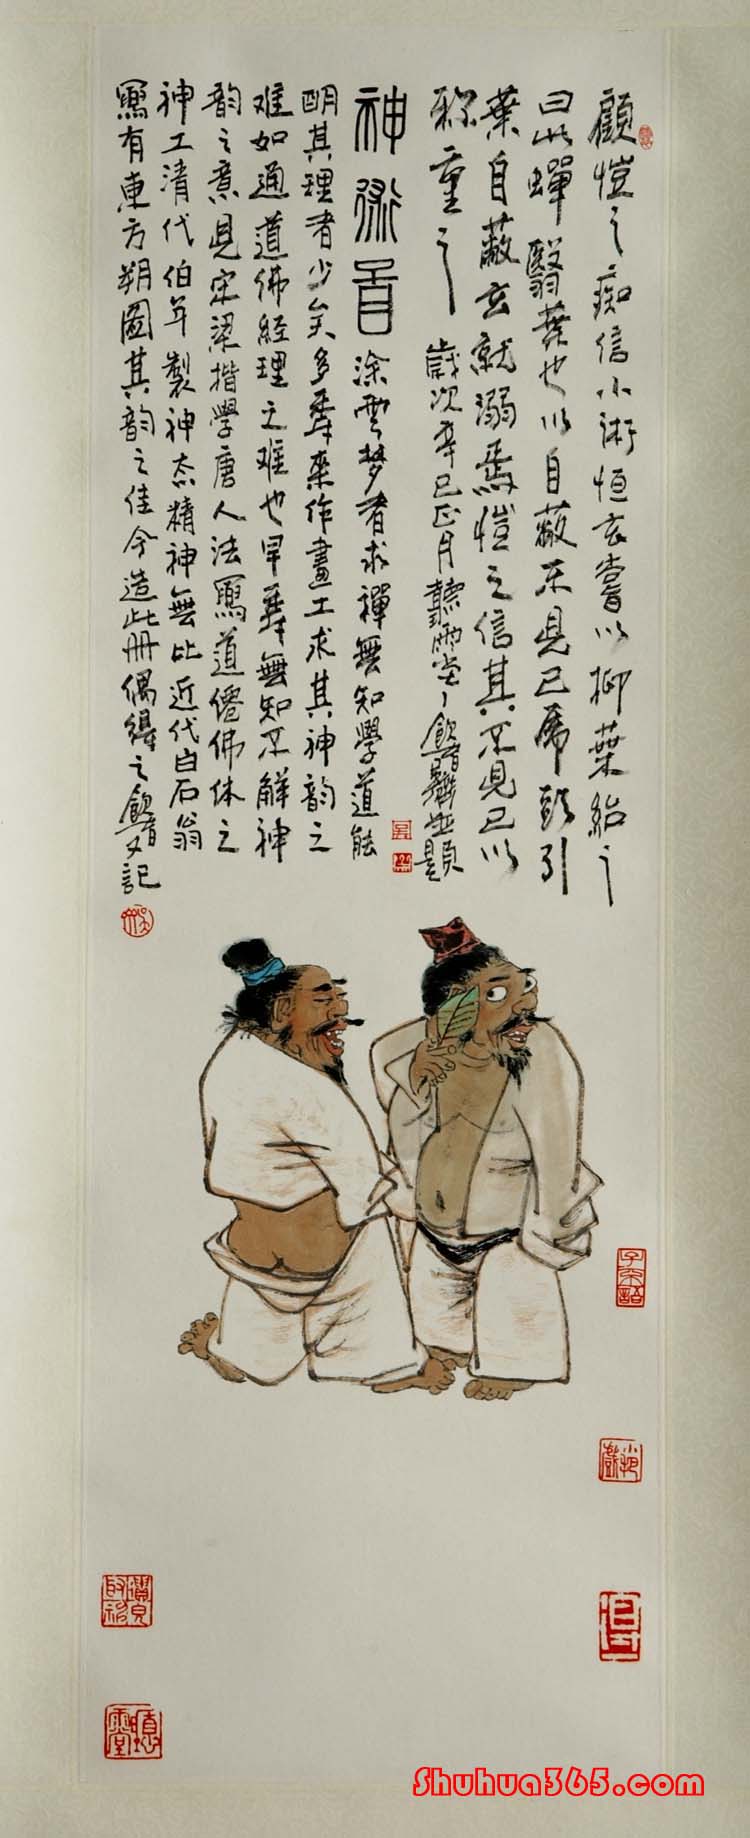 顧愷之痴信小術恒玄嘗以柳葉紿之
曰此蟬翳葉也以自蔽不見己虎頭引
葉自蔽玄就溺焉愷之信其不見己以
珍重之 歲次辛巳正月聽雨堂 並題
神術 涂雲梦者求禪無知學道能
明其理者少矣多年來作畫工求其神韵之
难如通道佛經理之难也早年無知不解神
韵之意見宋梁楷學唐人法寫道僊佛体之
神工清代伯年製神态精神無比近代白石翁
寫有東方朔圖其韵之佳今造此册偶得之 又記
Shuhua365.com